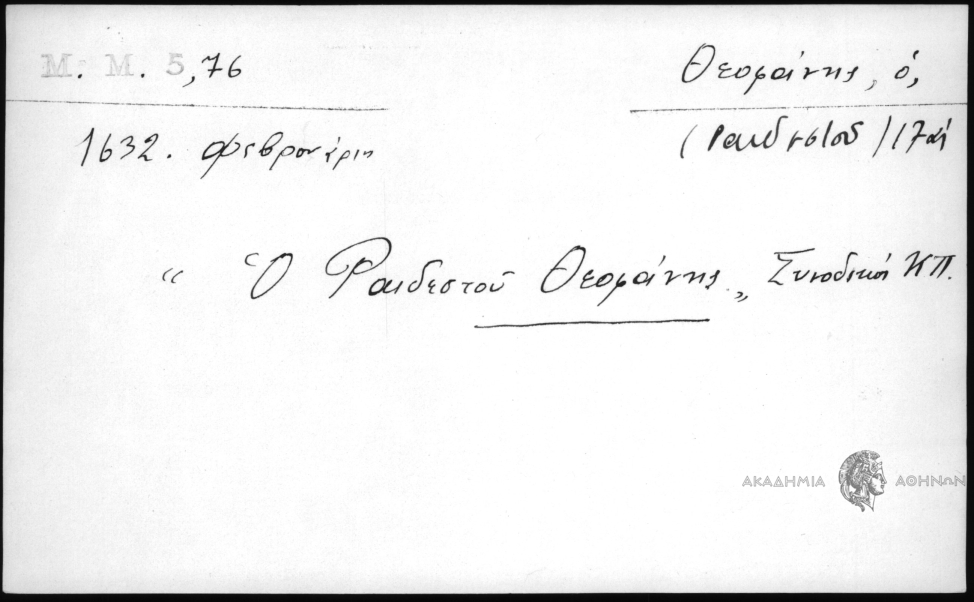 Μ. Μ. 5,76
Θεοφάνης, ὁ,
1632. Φεβρουάριῳ
(Ραιδεστοῦ) 17αί
“ Ὁ Ραιδεστοῦ Θεοφάνης „ Συνοδικοί ΚΠ.
ΑΚΑΔΗΜΙΑ ΑΘΗΝΩΝ